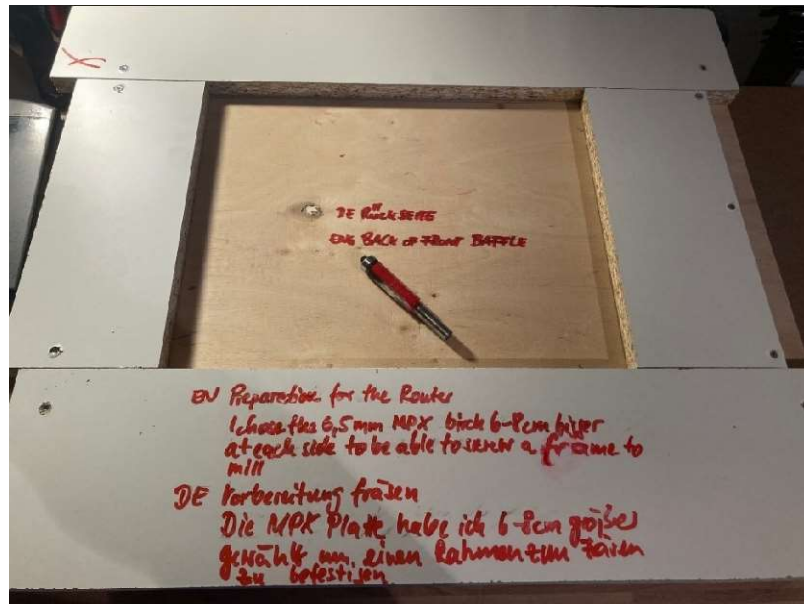 X
DE RÜCKSEITE
ENG BACK OF FRONT BAFFLE
EN Preparation for the Router
I chose the 6,5mm MPX birch 6-8cm bigger
at each side to be able to screw a frame to
mill
DE Vorbereitung fräsen
Die MPX Platte habe ich 6-8cm größer
gewählt um einen Rahmen zum fräsen
zu befestigen